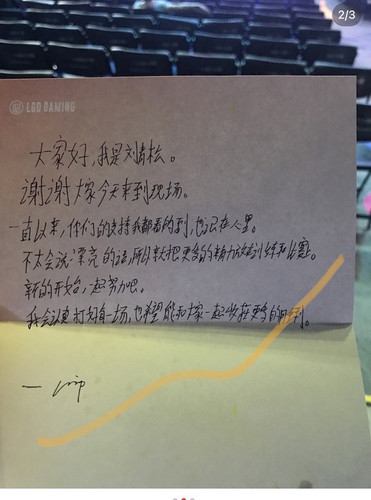 2/3
LGD GAMING
大家好，我是刘青松。
谢谢大家今天来到现场。
一直以来，你们的支持我都看的到，也记在心里。
不太会说漂亮的话，所以我把更多的精力放在训练和比赛。
新的开始，一起努力吧。
我会认真打好每一场，也希望能和大家一起收获更多的胜利。